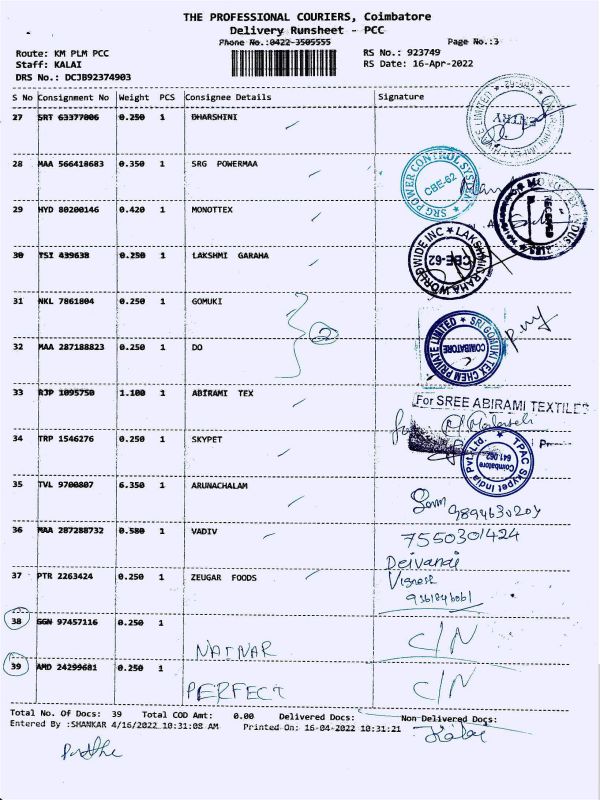 THE PROFESSIONAL COURIERS, Coimbatore
Delivery Runsheet - PCC
Phone No.:0422-3505555
Page No.:3
Route: KM PLM PCC
RS No.: 923749
Staff: KALAI
RS Date: 16-Apr-2022
DRS No.: DCJB92374903
S No Consignment No Weight PCS Consignee Details Signature
27 SRT 63377006 0.250 1 DHARSHINI
ENTRY
28 MAA 566418683 0.350 1 SRG POWERMAA
SRG POWER CONTROL SYSTEM
CBE-62
29 HYD 80200146 0.420 1 MONOTTEX
30 TSI 439638 0.250 1 LAKSHMI GARAHA
LAKSHMIGRAHA WORLDWIDE INC
CBE-62
31 NKL 7861804 0.250 1 GOMUKI
2
SRI GOMUKI TEX CHEM PRIVATE LIMITED
COIMBATORE
32 MAA 287188823 0.250 1 DO
33 RJP 1095750 1.100 1 ABIRAMI TEX
For SREE ABIRAMI TEXTILES
34 TRP 1546276 0.250 1 SKYPET
TPAC Skypet India Pvt. Ltd.
Coimbatore
641.062
35 TVL 9700807 6.350 1 ARUNACHALAM
9894630204
36 MAA 287288732 0.580 1 VADIV
7550301424
Deivanai
37 PTR 2263424 0.250 1 ZEUGAR FOODS
Vignesh
38 GGN 97457116 0.250 1
NATNAR C/N
39 AMD 24299681 0.250 1
PERFECT C/N
Total No. Of Docs: 39 Total COD Amt: 0.00 Delivered Docs: Non Delivered Docs:
Entered By :SHANKAR 4/16/2022 10:31:08 AM Printed On: 16-04-2022 10:31:21
Kalai